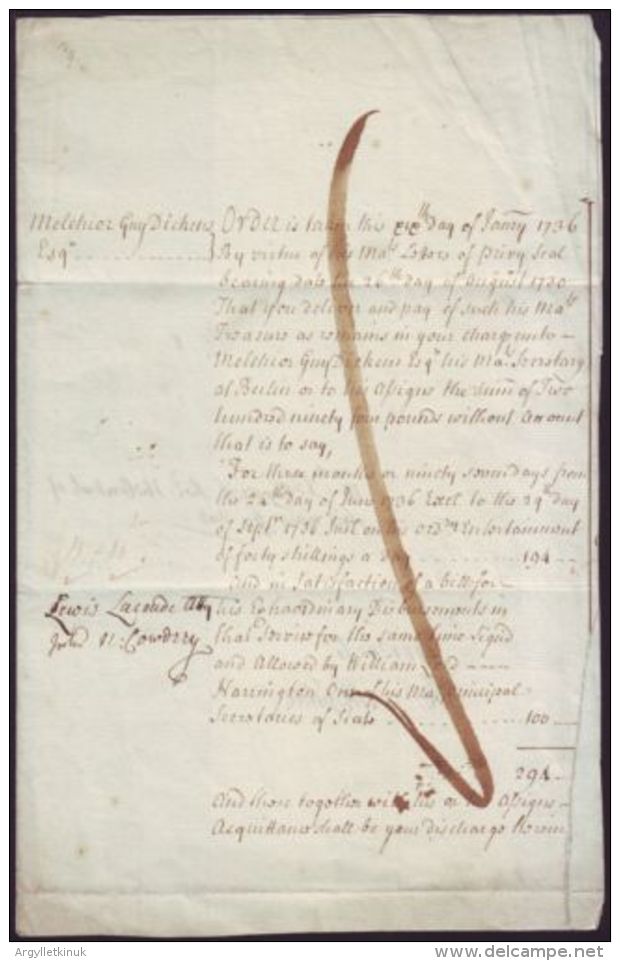 Melchior Guy Dickens
Esqr
Order is taken this xixth day of Janry 1736
By virtue of his Mats Letters of Privy Seal
bearing date the 26th day of August 1730
That you deliver and pay of such his Mats
Treasure as remains in your charge unto
Melchior Guy Dickens Esqr his Mats Secretary
at Berlin or to his Assigns the summ of Two
hundred ninety four pounds without Account
that is to say,
For three months or ninety seven days from
the 24th day of June 1736 Excl. to the 29th day
of Septr 1736 Incl. on his ordry Entertainment
of forty shillings a day 194
And in satisfaction of a bill for
his Extraordinary Disbursements in
that Service for the same time Signd
and Allowed by William Lord
Harrington One of his Mats Principal
Secretaries of State 100
294
And these together with his or his Assigns
Acquittance shall be your discharge herein
Lewis Laconde Atty
John N: Cowdery
Argylletkinuk
delcampe.net